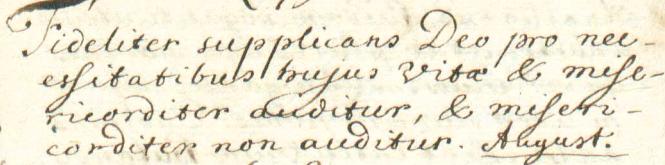 Fideliter supplicans Deo pro nec-
essitatibus hujus vitæ & mise-
ricorditer auditur, & miseri-
corditer non auditur. August.